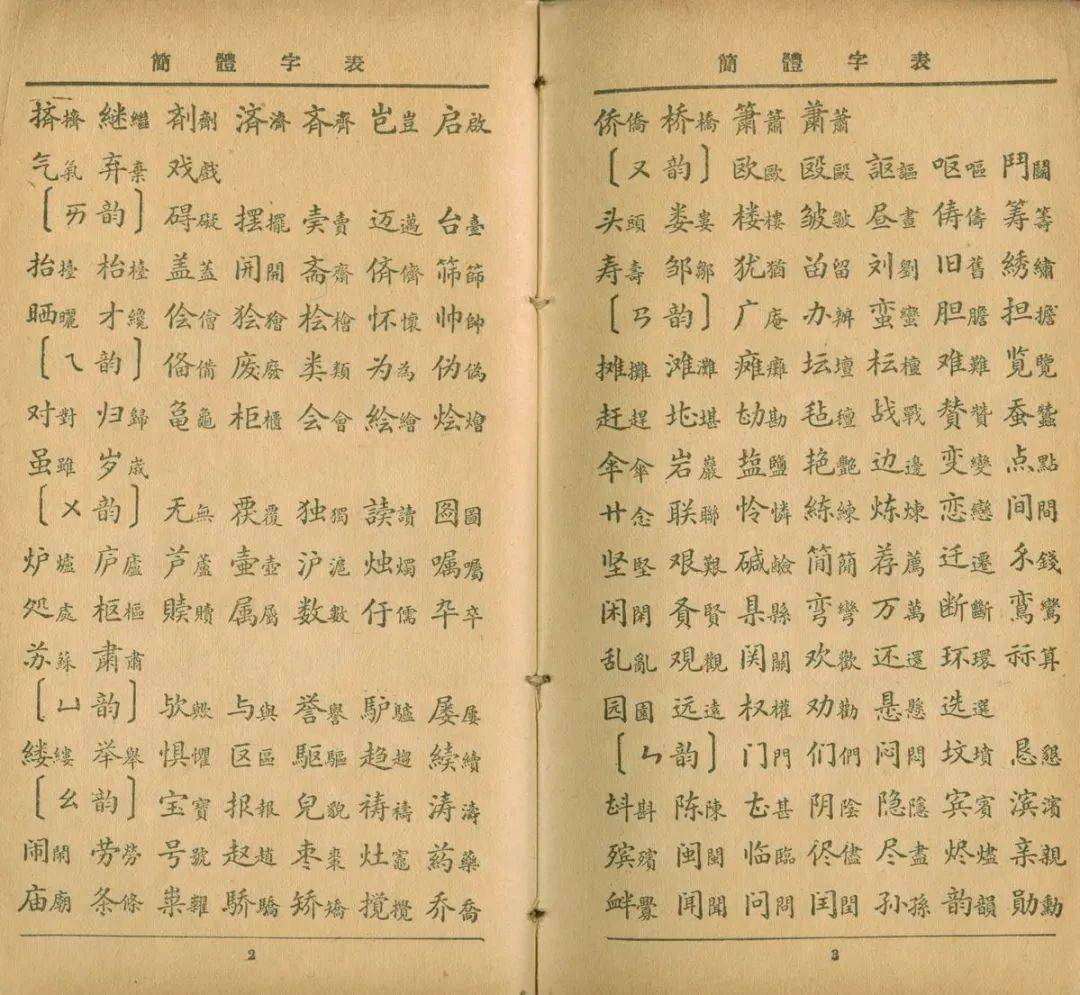 簡體字表
挤擠 継繼 剤劑 済濟 斉齊 岂豈 启啟
气氣 弃棄 戏戲
〔ㄞ韵〕 碍礙 摆擺 卖賣 迈邁 台臺
抬擡 枱檯 盖蓋 开開 斋齋 侪儕 筛篩
晒曬 才纔 侩儈 狯獪 桧檜 怀懷 帅帥
〔ㄟ韵〕 俻備 废廢 类類 为為 伪偽
对對 归歸 亀龜 柜櫃 会會 絵繪 烩燴
虽雖 岁歲
〔ㄨ韵〕 无無 覆 独獨 読讀 図圖
炉爐 庐廬 芦蘆 壶壺 沪滬 烛燭 嘱囑
処處 枢樞 赎贖 属屬 数數 伃儒 卆卒
苏蘇 粛肅
〔ㄩ韵〕 欤歟 与與 誉譽 馿驢 屡屢
缕縷 举舉 惧懼 区區 駆驅 趋趨 続續
〔ㄠ韵〕 宝寶 报報 皃貌 祷禱 涛濤
闹鬧 劳勞 号號 赵趙 枣棗 灶竈 药藥
庙廟 条條 粜糶 骄驕 矫矯 搅攪 乔喬
2
簡體字表
侨僑 桥橋 簫 蕭
〔ㄡ韵〕 欧歐 殴毆 讴謳 呕嘔 鬥鬭
头頭 娄婁 楼樓 皱皺 昼晝 俦儔 筹籌
寿壽 邹鄒 犹猶 畄留 刘劉 旧舊 绣繡
〔ㄢ韵〕 广庵 办辦 蛮蠻 胆膽 担擔
摊攤 滩灘 瘫癱 坛壇 枟檀 难難 览覽
赶趕 堪 勘 毡氈 战戰 賛贊 蚕蠶
伞傘 岩巖 塩鹽 艳艷 边邊 变變 点點
廿念 联聯 怜憐 練練 炼煉 恋戀 间間
坚堅 艰艱 碱鹼 简簡 荐薦 迁遷 錢
闲閑 賢 県縣 弯彎 万萬 断斷 鸾鸞
乱亂 观觀 関關 欢歡 还還 环環 祘算
园園 远遠 权權 劝勸 悬懸 选選
〔ㄣ韵〕 门門 们們 闷悶 坟墳 恳懇
斟 陈陳 甚 阴陰 隐隱 宾賓 滨濱
殡殯 闽閩 临臨 侭儘 尽盡 烬燼 亲親
衅釁 闻聞 问問 闰閏 孙孫 韵韻 勋勳
3